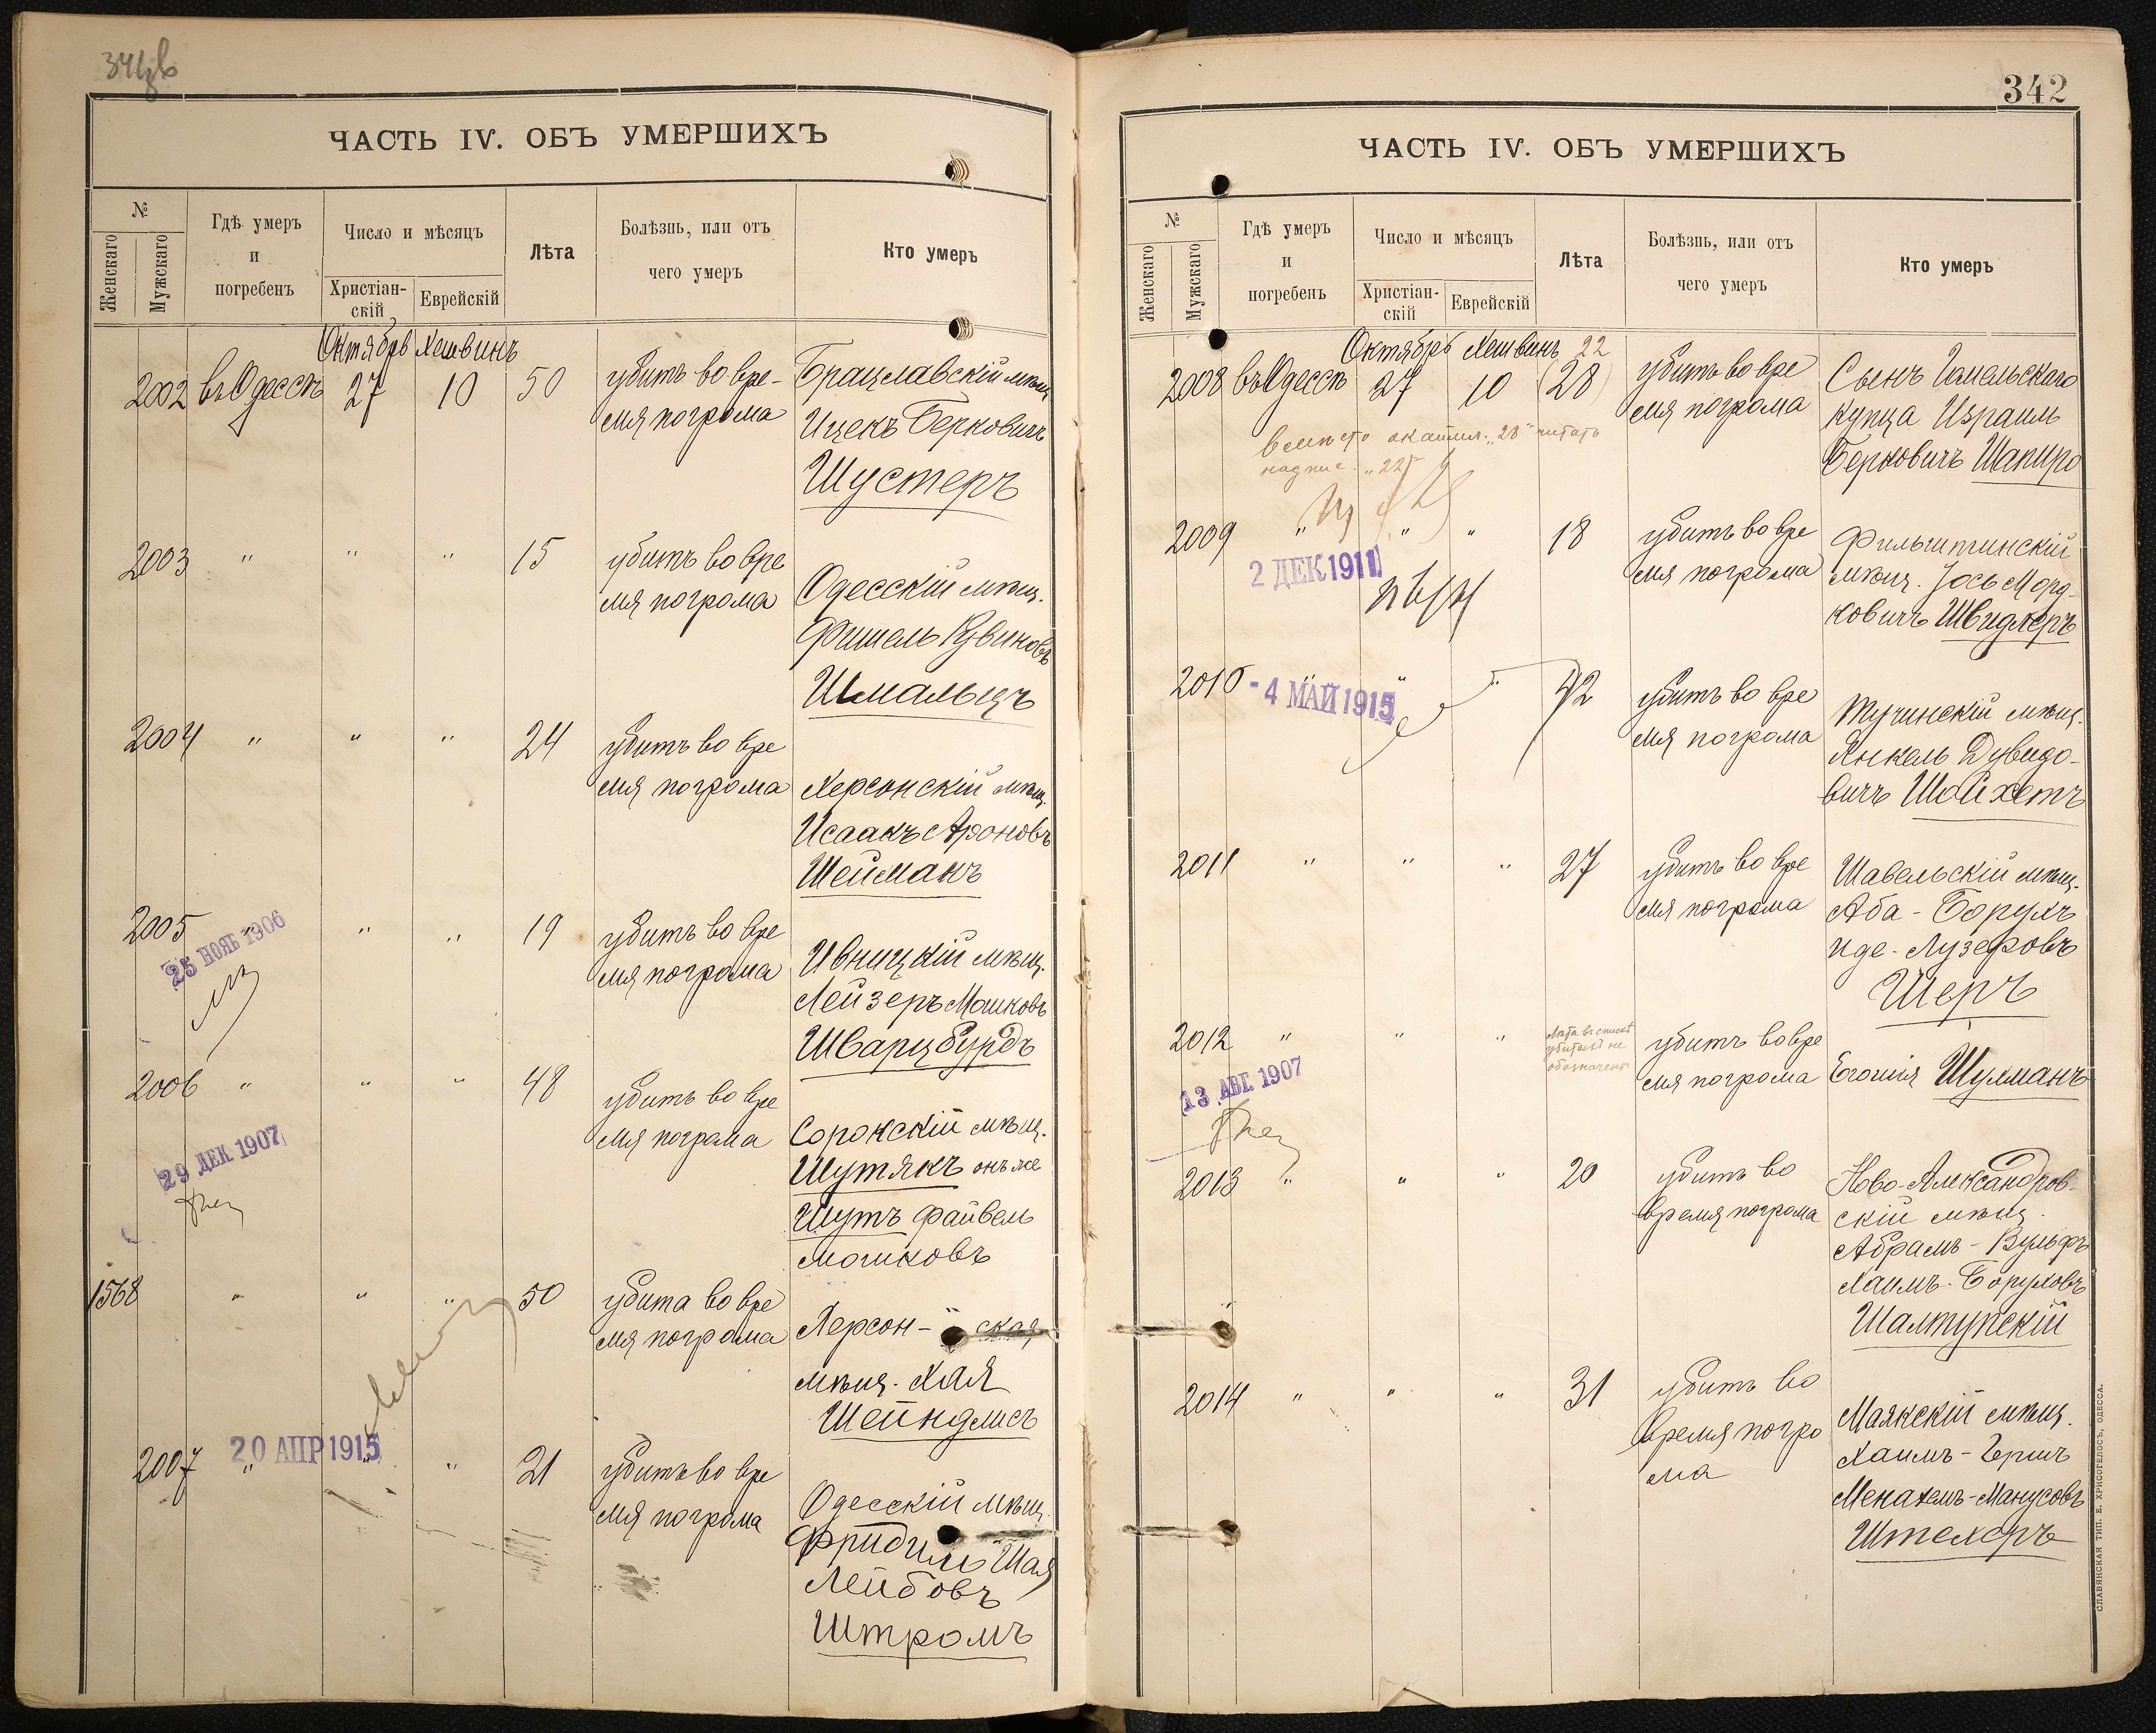 ЧАСТЬ IV. ОБЪ УМЕРШИХЪ
№
Женскаго
Мужскаго
Гдѣ умеръ
и
погребенъ
Число и мѣсяцъ
Христіан-
скій
Еврейскій
Лѣта
Болѣзнь, или отъ
чего умеръ
Кто умеръ
Октябрь Хешвинъ
2002 въ Одессѣ 27 10 50 убитъ во вре- Брацлавскій мѣщ.
мя погрома Ицекъ Берковичъ
Шустеръ
2003 " " " 15 убитъ во вре
мя погрома Одесскій мѣщ.
Фишель Рувиновъ
Шмальцъ
2004 " " " 24 убитъ во вре
мя погрома Херсонскій мѣщ.
Исаакъ Ароновъ
Шейманъ
2005 " " " 19 убитъ во вре
25 НОЯБ 1906
мя погрома Ивницкій мѣщ.
Лейзеръ Мошковъ
Шварцбурдъ
2006 " " " 48 убитъ во вре
мя погрома Сорокскій мѣщ.
29 ДЕК 1907
Шутякъ онъ же
Шутъ Файвель
Мошковъ
1568 " " " 50 убита во вре
мя погрома Херсон- ская
мѣщ. Хая
Шейндлисъ
20 АПР 1915
2007 " " " 21 убитъ во вре
мя погрома Одесскій мѣщ.
Фридиль Шая
Лейбовъ
Штромъ
342
ЧАСТЬ IV. ОБЪ УМЕРШИХЪ
№
Женскаго
Мужскаго
Гдѣ умеръ
и
погребенъ
Число и мѣсяцъ
Христіан-
скій
Еврейскій
Лѣта
Болѣзнь, или отъ
чего умеръ
Кто умеръ
Октябрь Хешвинъ 22
2008 въ Одессѣ 27 10 (28) убитъ во вре Сынъ Гомельскаго
мя погрома купца Израиль
Берковичъ Шапиро
вмѣсто окаймл. "28" читать
надпис. "22"
2009 " " " 18 убитъ во вре Фильштинскій
мя погрома мѣщ. Іось Морд-
ковичъ Швидлеръ
2 ДЕК 1911
2010 " " " 42 убитъ во вре
- 4 МАЙ 1915
мя погрома Тучинскій мѣщ.
Янкель Дувидо-
вичъ Шойхетъ
2011 " " " 27 убитъ во вре Шавельскій мѣщ.
мя погрома Аба-Борухъ
Иде-Лузеровъ
Шеръ
2012 " " " Лѣта въ спискѣ
убитыхъ не
обозначены
убитъ во вре
мя погрома Егошія Шулманъ
13 АВГ. 1907
2013 " " " 20 убитъ во Ново-Александров-
время погрома скій мѣщ.
Абрамъ-Вульфъ
Хаимъ-Боруховъ
Шалтупскій
2014 " " " 31 убитъ во
время погро Маякскій мѣщ.
ма Хаимъ-Гершъ
Менахемъ-Манусовъ
Штехеръ
СЛАВЯНСКАЯ ТИП. Е. ХРИСОГЕЛОСЪ, ОДЕССА.